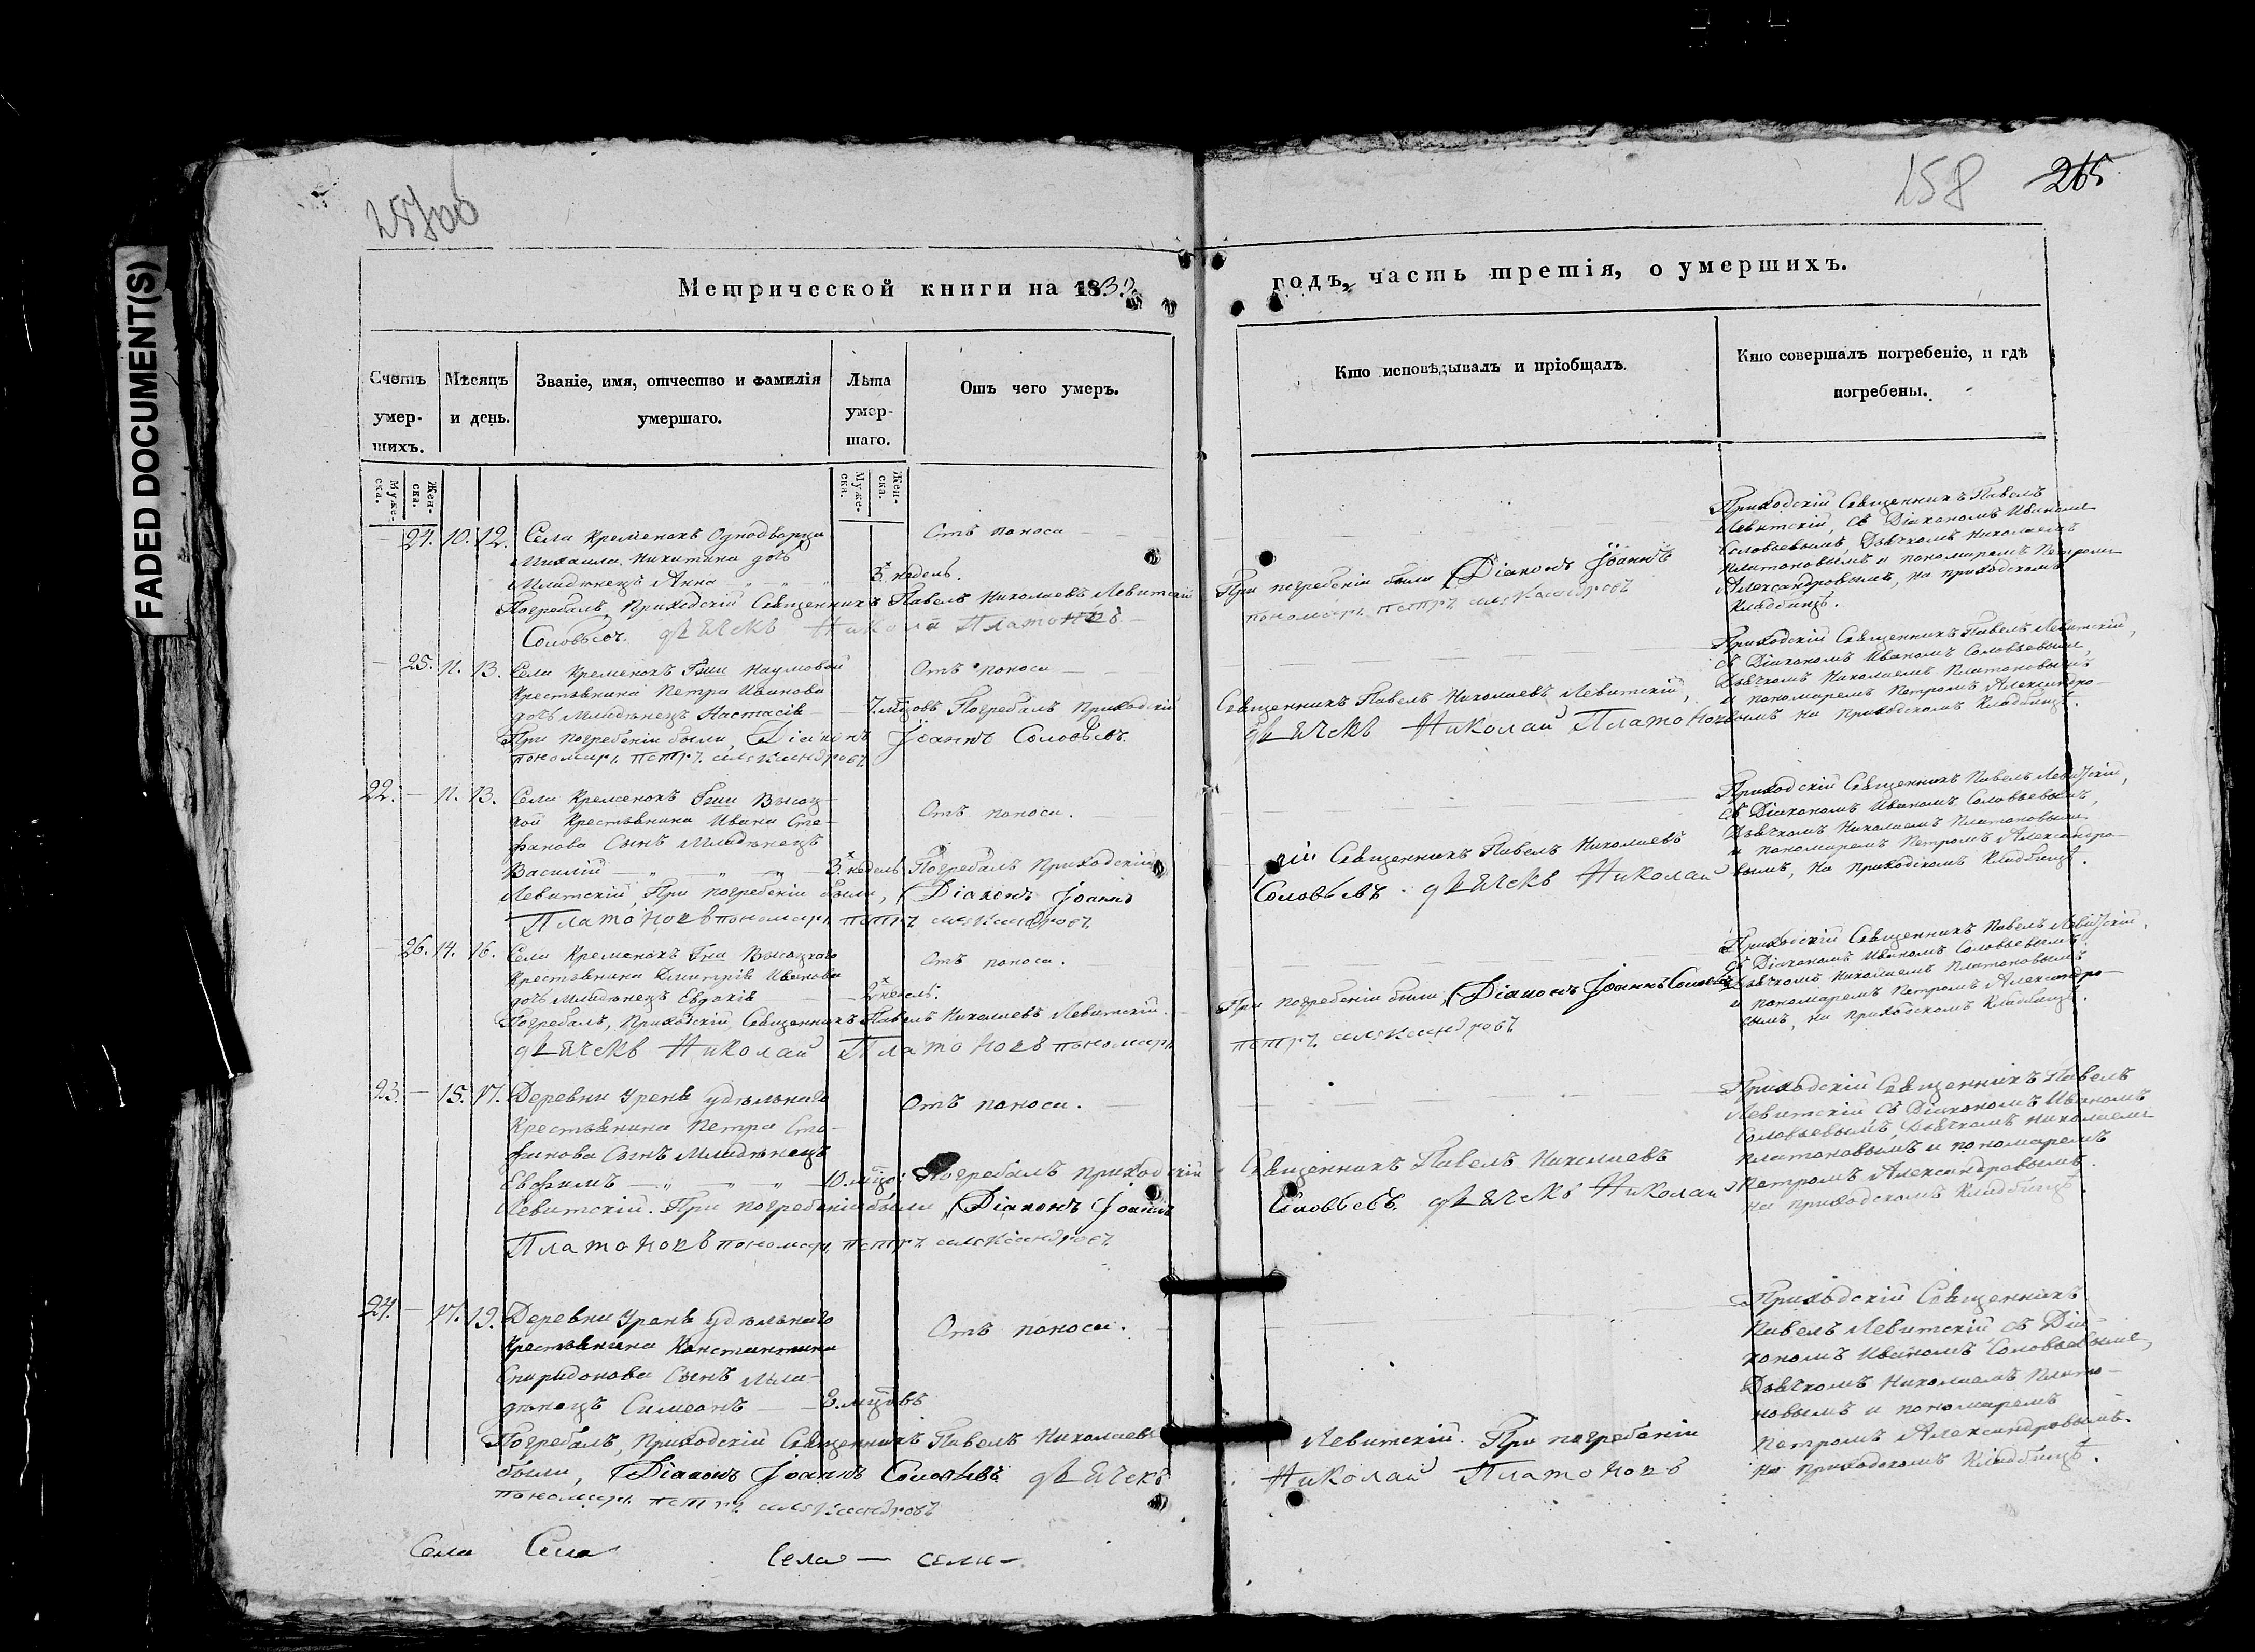 FADED DOCUMENT(S)
158 265
Метрической книги на 1839
годъ, часть третія, о умершихъ.
Счетъ умер-шихъ.
Мѣсяцъ и день.
Званіе, имя, отчество и фамилія умершаго.
Лѣта умер-шаго.
Отъ чего умеръ.
Кто исповѣдывалъ и пріобщалъ.
Кто совершалъ погребеніе, и гдѣ погребены.
Муже-ска.
Жен-ска.
Муже-ска.
Жен-ска.
24. 10. 12. Села Кременокъ Однодворца
Михаила Никитина дочь
Младѣнецъ Анна
3х недель.
Отъ поноса
Погребалъ, Приходскій Священникъ Павелъ Николаевъ Левитскій
При погребеніи были Діаконъ Іоаннъ
Соловьевъ. дьячекъ Николай Платоновъ
пономарь петръ александровъ
Приходскій Священникъ Павелъ
Левитскій, съ Діакономъ Иваномъ
Соловьевымъ, Дьячкомъ Николаемъ
Платоновымъ и пономаремъ Петромъ
Александровымъ, на приходскомъ
кладбищѣ.
25. 11. 13. Села Кременокъ Гжи Наумовой
Крестьянина Петра Иванова
дочь Младѣнецъ Настасія
7. мцовъ
Отъ поноса
Погребалъ Приходскій
Священникъ Павелъ Николаевъ Левитскій,
При погребеніи были, Діаконъ Іоаннъ Соловьевъ.
дьячекъ Николай Платоновъ
пономарь петръ александровъ
Приходскій Священникъ Павелъ Левитскій,
съ Діакономъ Иваномъ Соловьевымъ,
Дьячкомъ Николаемъ Платоновымъ
и пономаремъ Петромъ Александро-
вымъ на приходскомъ кладбищѣ.
22. — 11. 13. Села Кременокъ Гжи Высоц-
кой Крестьянина Ивана Сте-
фанова Сынъ Младѣнецъ
Василій
3х недель
Отъ поноса.
Погребалъ Приходскій
Священникъ Павелъ Николаевъ
Левитскій, При погребеніи были, Діаконъ Іоаннъ
Соловьевъ. дьячекъ Николай
Платоновъ пономарь петръ александровъ
Приходскій Священникъ Павелъ Левитскій,
съ Діакономъ Иваномъ Соловьевымъ,
Дьячкомъ Николаемъ Платоновымъ
и пономаремъ Петромъ Александро-
вымъ, на приходскомъ кладбищѣ.
26. 14. 16. Села Кременокъ Гна Высоцкаго
Крестьянина Дмитрія Иванова
дочь Младѣнецъ Евдокія
2х недель.
Отъ поноса.
Погребалъ, Приходскій, Священникъ Павелъ Николаевъ Левитскій.
При погребеніи были, Діаконъ Іоаннъ Соловьевъ
дьячекъ Николай Платоновъ пономарь
петръ александровъ
Приходскій Священникъ Павелъ Левитскій,
съ Діакономъ Иваномъ Соловьевымъ,
Дьячкомъ Николаемъ Платоновымъ
и пономаремъ Петромъ Александро-
вымъ, на приходскомъ кладбищѣ.
23. — 15. 17. Деревни Урени удѣльнаго
Крестьянина Петра
Сынъ Младѣнецъ
Евфимъ
10. мцо:
Отъ поноса.
Погребалъ Приходскій
Священникъ Павелъ Николаевъ
Левитскій. При погребеніи были, Діаконъ Іоаннъ
Соловьевъ. дьячекъ Николай
Платоновъ пономарь петръ александровъ
Приходскій Священникъ Павелъ
Левитскій съ Діакономъ Иваномъ
Соловьевымъ, Дьячкомъ Николаемъ
Платоновымъ и пономаремъ
Петромъ Александровымъ.
на приходскомъ кладбищѣ.
24. — 17. 19. Деревни Урени удѣльнаго
Крестьянина Константина
Спиридонова Сынъ Мла-
дѣнецъ Симеонъ
мцовъ
Отъ поноса.
Погребалъ, Приходскій Священникъ Павелъ Николаевъ
Левитскій. При погребеніи
были, Діаконъ Іоаннъ Соловьевъ дьячекъ
Николай Платоновъ
пономарь петръ александровъ
Приходскій Священникъ
Павелъ Левитскій съ Діа-
кономъ Иваномъ Соловьевымъ,
Дьячкомъ Николаемъ Плато-
новымъ и пономаремъ
Петромъ Александровымъ.
на приходскомъ кладбищѣ.
Села Села Села — села —